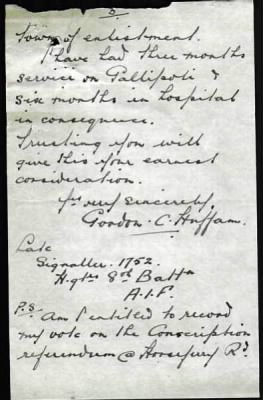 6.
town of enlistment.
I have had three months
service on Gallipoli &
six months in hospital
in consequence.
Trusting you will
give this your earnest
consideration.
Yrs very sincerely,
Gordon. C. Huffam.
Late
Signaller. 1752.
H.qtrs 8th Battn
A.I.F.
P.S. Am I entitled to record
my vote on the Conscription
referendum @ Horseferry Rd.